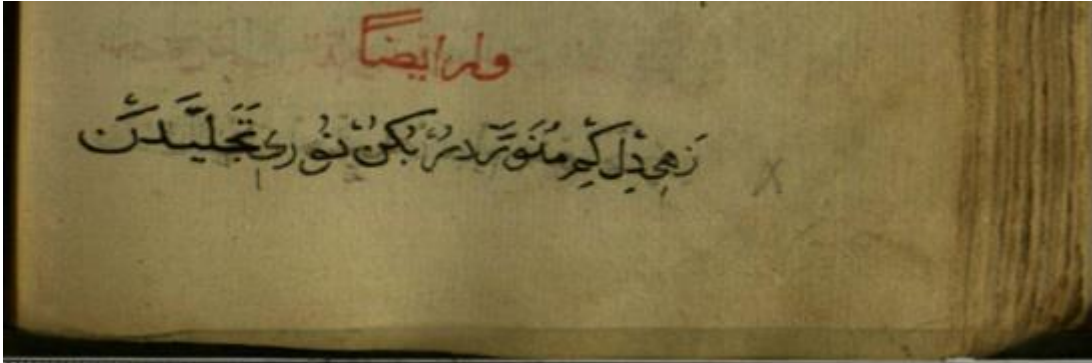 وله ايضاً
زَهِی دِل کِیم مُنَوَّردُر بُکُن نُورِی تَجَلِّیدَن